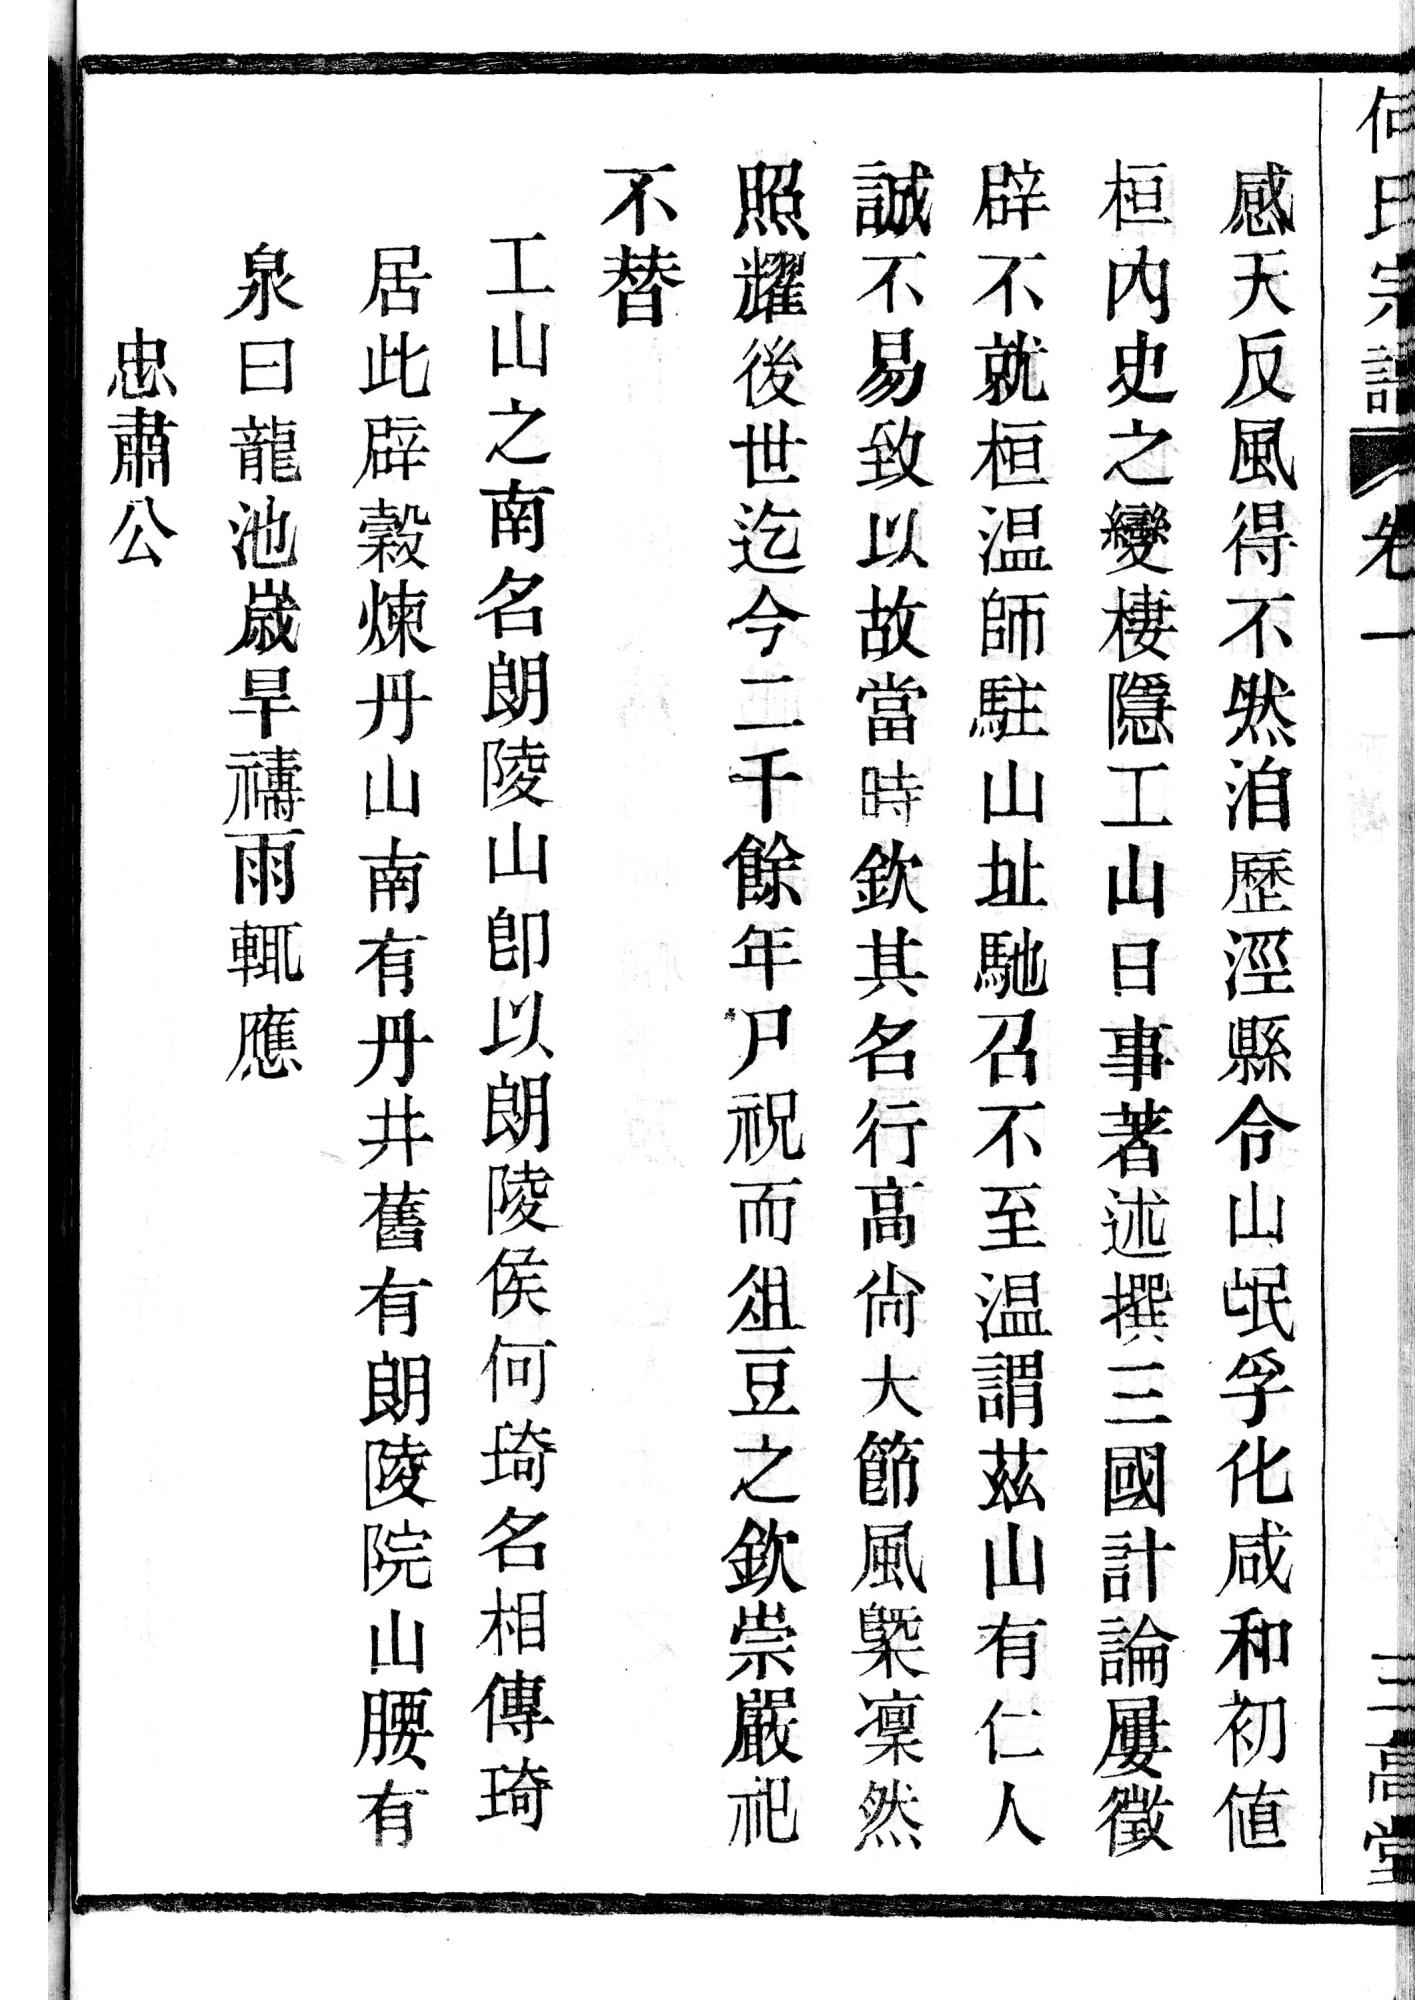 何氏宗譜 卷一 三高堂
感天反風得不然洎歷涇縣令山氓孚化咸和初值
桓內史之變棲隱工山日事著述撰三國計論屢徵
辟不就桓温師駐山址馳召不至温謂茲山有仁人
誠不易致以故當時欽其名行高尙大節風槩凜然
照耀後世迄今二千餘年尸祝而俎豆之欽崇嚴祀
不替
工山之南名朗陵山卽以朗陵侯何琦名相傳琦
居此辟穀煉丹山南有丹井舊有朗陵院山腰有
泉曰龍池歲旱禱雨輒應
忠肅公